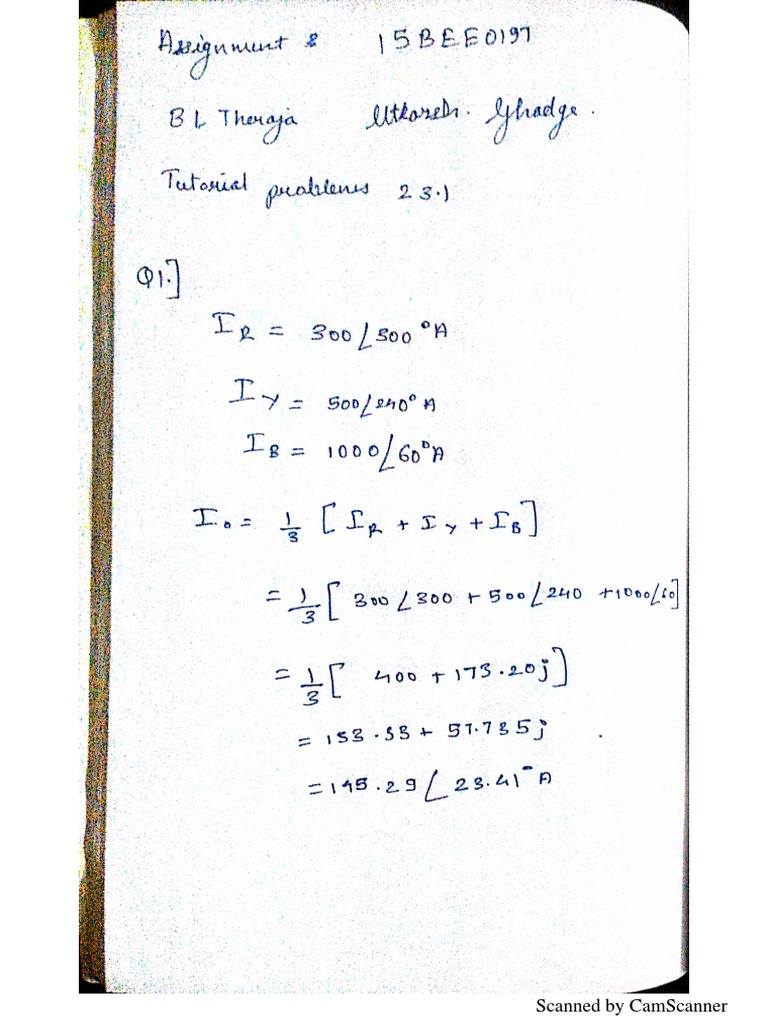 Assignment 8 15BEE0197
B L Theraja Utkarsh. Ghadge.
Tutorial problems 23.1
Q1.]
I_R = 300∠300°A
I_Y = 500∠240° A
I_B = 1000∠60°A
I_0 = 1/3 [I_R + I_Y + I_B]
= 1/3 [300∠300 + 500∠240 + 1000∠60]
= 1/3 [400 + 173.20j]
= 133.33 + 57.735j
= 145.29∠23.41° A
Scanned by CamScanner